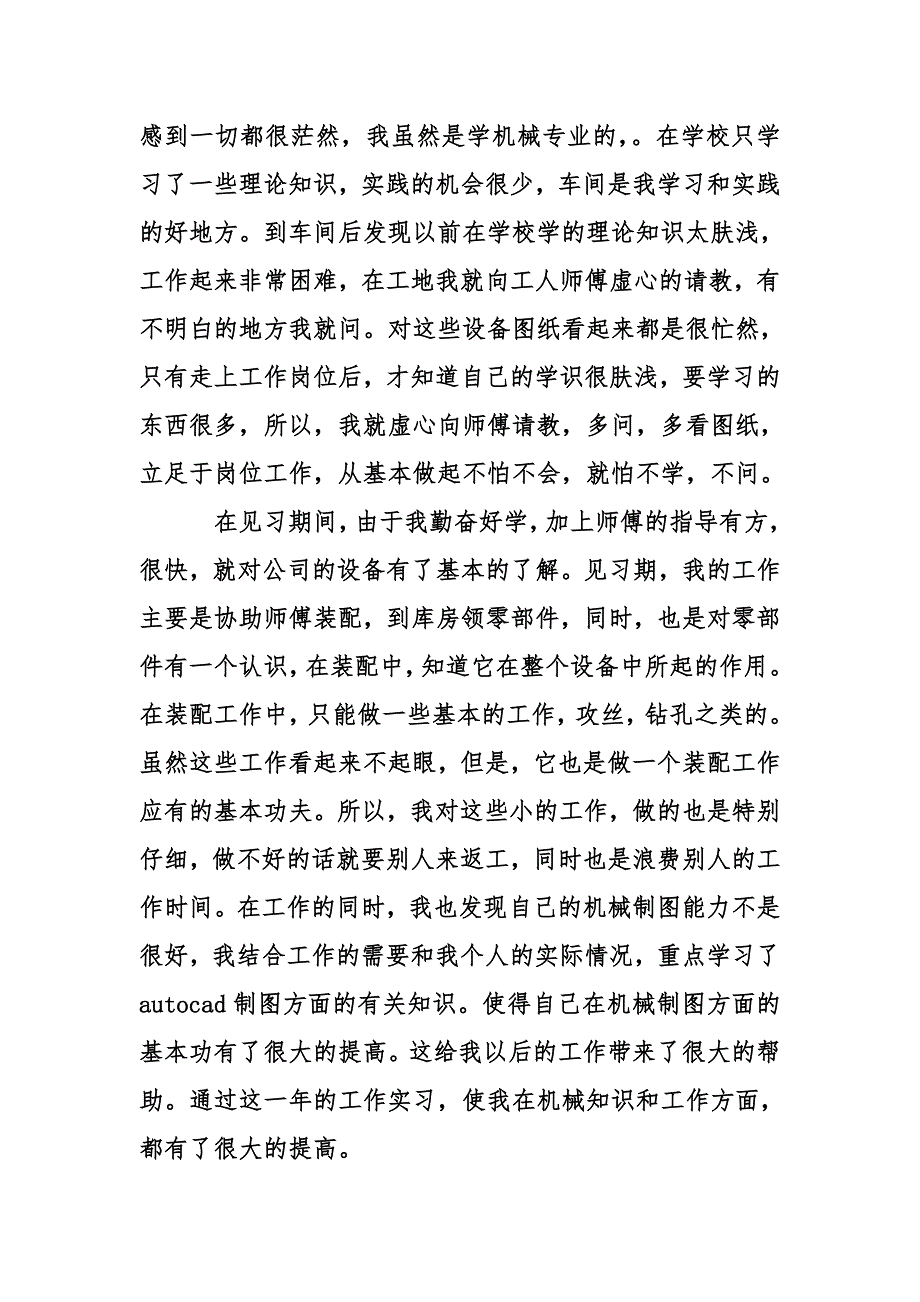 感到一切都很茫然，我虽然是学机械专业的，。在学校只学
习了一些理论知识，实践的机会很少，车间是我学习和实践
的好地方。到车间后发现以前在学校学的理论知识太肤浅，
工作起来非常困难，在工地我就向工人师傅虚心的请教，有
不明白的地方我就问。对这些设备图纸看起来都是很忙然，
只有走上工作岗位后，才知道自己的学识很肤浅，要学习的
东西很多，所以，我就虚心向师傅请教，多问，多看图纸，
立足于岗位工作，从基本做起不怕不会，就怕不学，不问。
在见习期间，由于我勤奋好学，加上师傅的指导有方，
很快，就对公司的设备有了基本的了解。见习期，我的工作
主要是协助师傅装配，到库房领零部件，同时，也是对零部
件有一个认识，在装配中，知道它在整个设备中所起的作用。
在装配工作中，只能做一些基本的工作，攻丝，钻孔之类的。
虽然这些工作看起来不起眼，但是，它也是做一个装配工作
应有的基本功夫。所以，我对这些小的工作，做的也是特别
仔细，做不好的话就要别人来返工，同时也是浪费别人的工
作时间。在工作的同时，我也发现自己的机械制图能力不是
很好，我结合工作的需要和我个人的实际情况，重点学习了
autocad 制图方面的有关知识。使得自己在机械制图方面的
基本功有了很大的提高。这给我以后的工作带来了很大的帮
助。通过这一年的工作实习，使我在机械知识和工作方面，
都有了很大的提高。